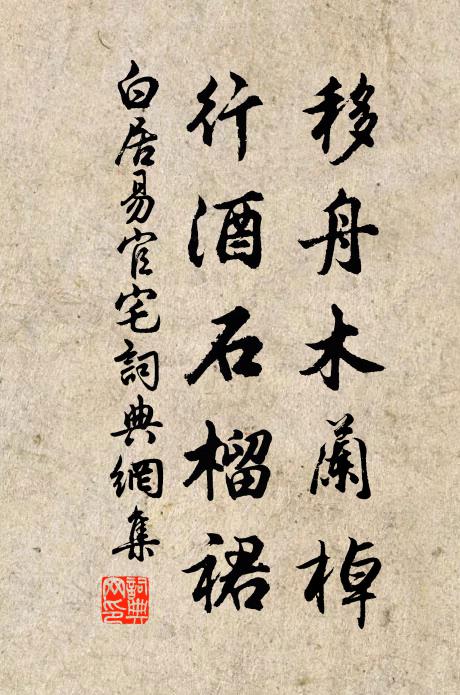 移舟木蘭棹
行酒石榴裙
白居易官宅詞典網集
詞典网印